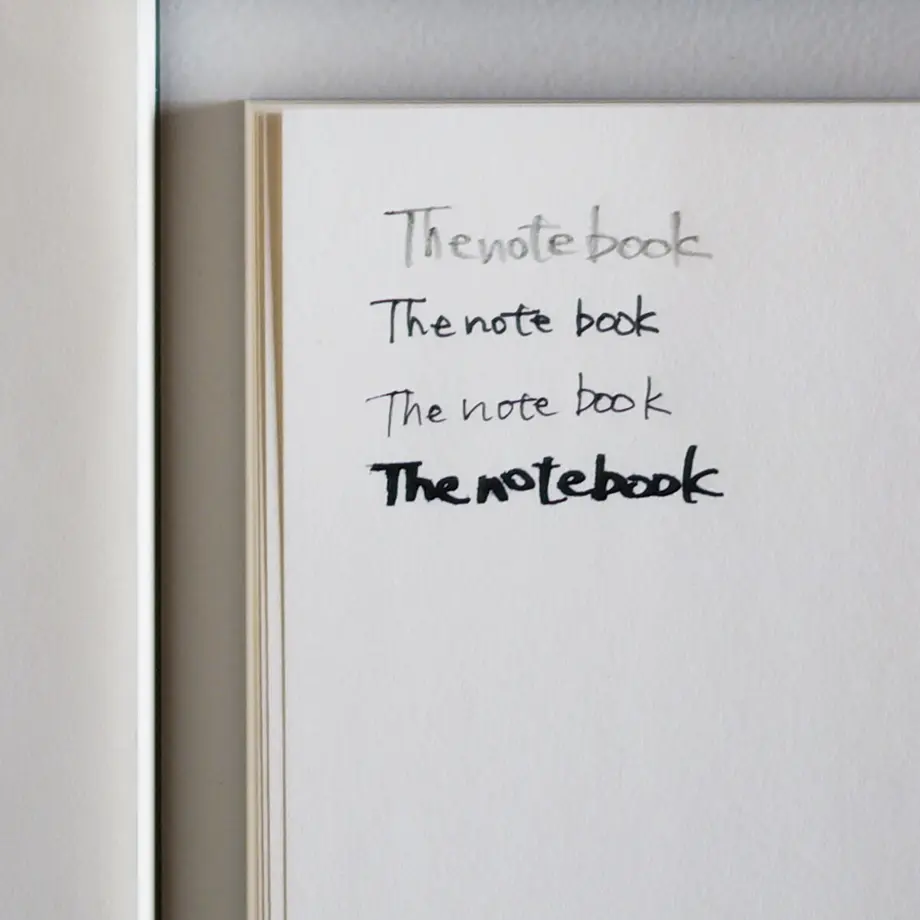 The note book
The note book
The note book
The notebook